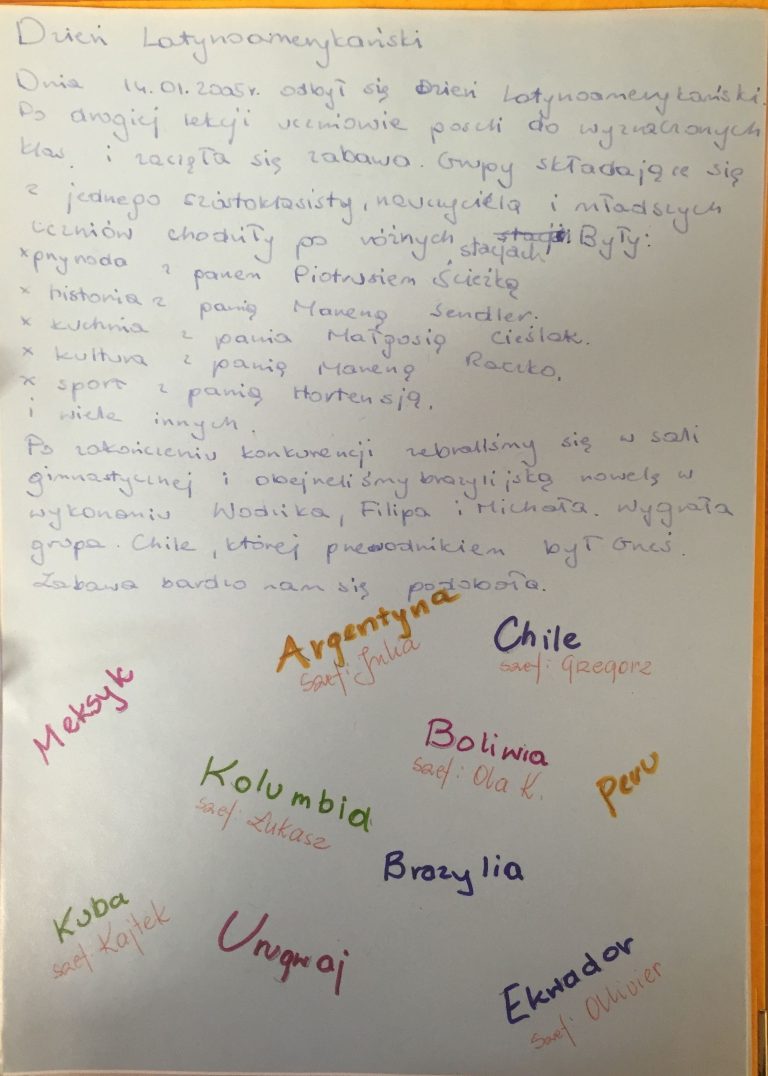 Dzień Latynoamerykański
Dnia 14.01.2005r. odbył się Dzień Latynoamerykański.
Po drogiej lekcji uczniowie poszli do wyznaczonych
klas. i zaczęła się zabawa. Grupy składające się
z jednego szóstoklasisty, nauczyciela i młodszych
uczniów chodziły po różnych stacjach. Były:
x przyroda z panem Piotrusiem Ścieżką
x historia z panią Mareną Sendler.
x kuchnia z pania Małgosią Cieślak.
x kultura z panią Mareną Raczko.
x sport z panią Hortensją.
i wiele innych.
Po zakończeniu konkurencji zebraliśmy się w sali
gimnastycznej i obejrzeliśmy brazylijską nowelę w
wykonaniu Wodzika, Filipa i Michała. Wygrała
grupa Chile, której przewodnikiem był Grześ.
Zabawa bardzo nam się podobała.
Argentyna
szef: Julia
Chile
szef: Grzegorz
Meksyk
Boliwia
szef: Ola K.
Peru
Kolumbia
szef: Łukasz
Brazylia
Kuba
szef Kajtek
Urugwaj
Ekwador
szef: Ollivier